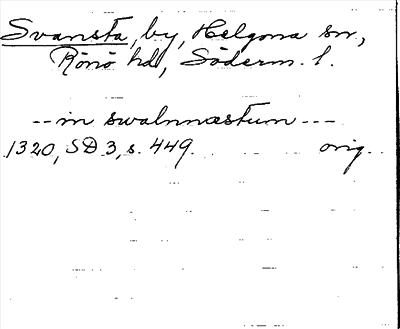 Svansta, by, Helgona sn,
Rönö hd, Söderm. l.
--- in swalnnæstum ---
1320, SD 3, s. 449. orig.